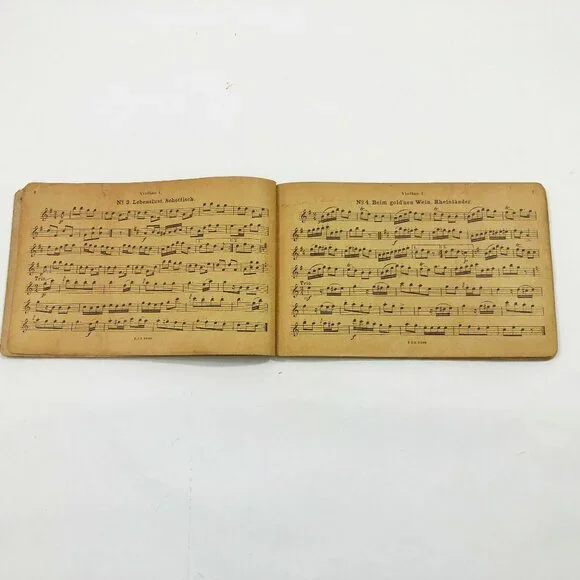 Violino I.
No. 3. Lebenslust. Schottisch.
Trio.
Violino I.
No. 4. Beim goldnen Wein. Rheinländer.
Trio.